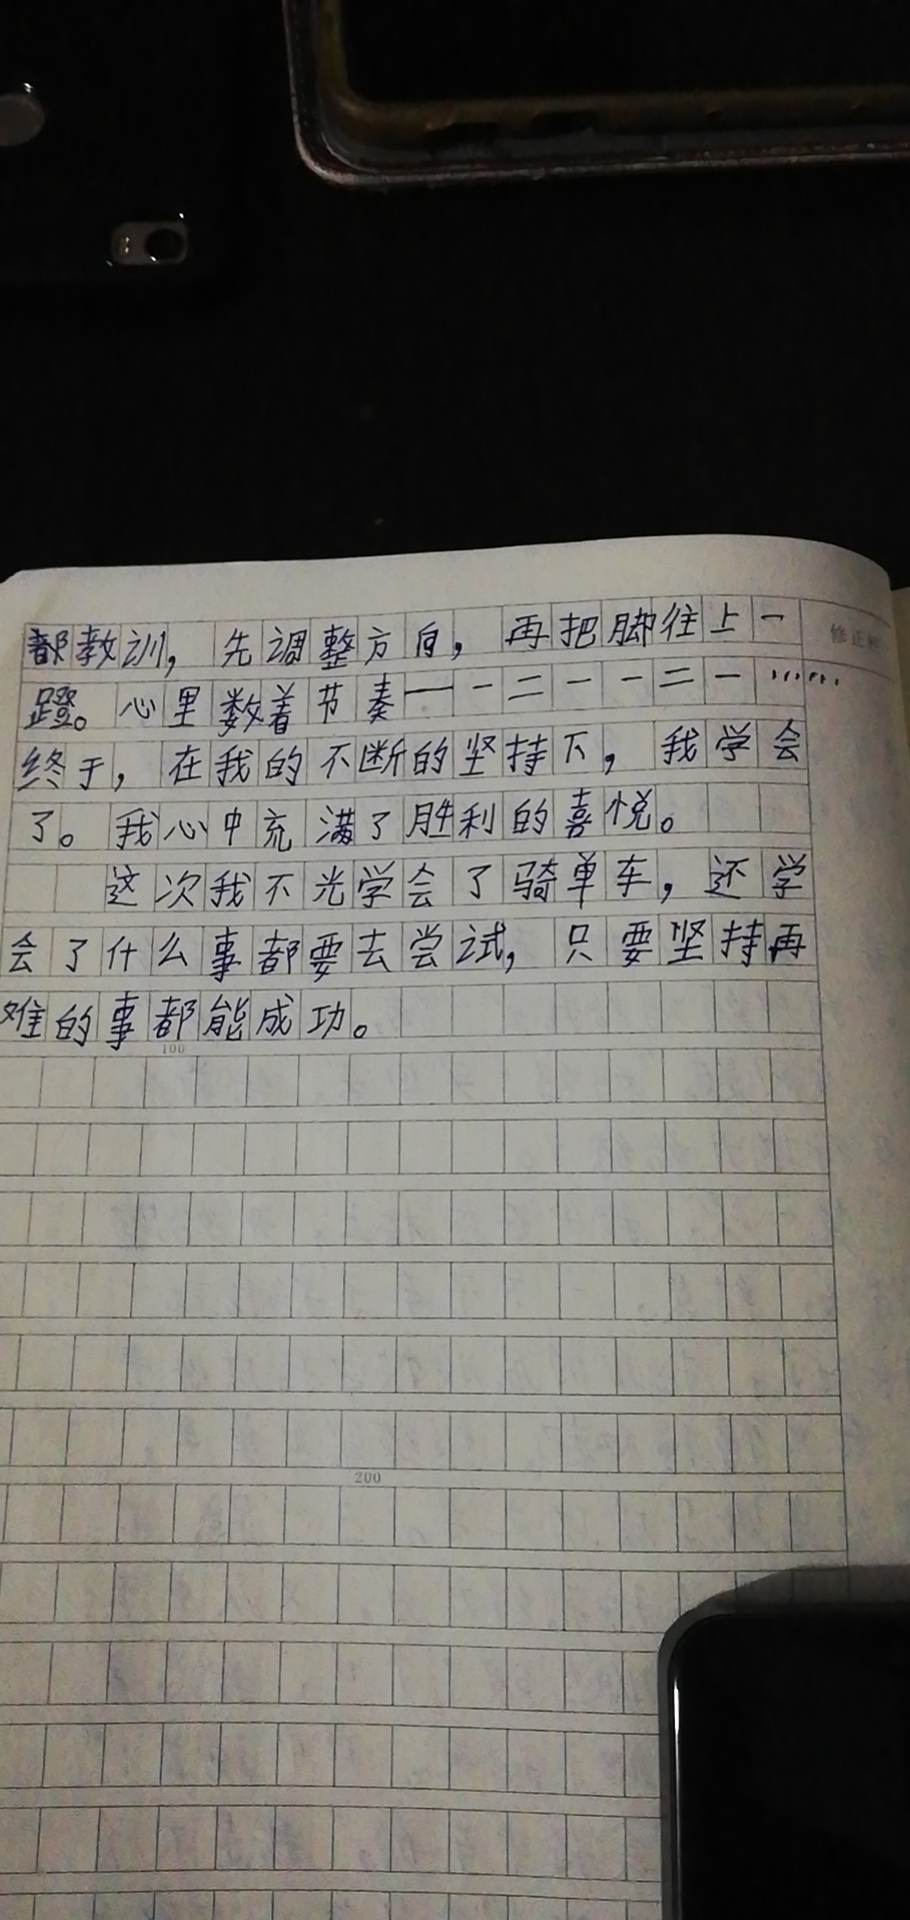 都教训，先调整方向，再把脚往上一
蹬。心里数着节奏——一二一一二一……
终于，在我的不断的坚持下，我学会
了。我心中充满了胜利的喜悦。
这次我不光学会了骑单车，还学
会了什么事都要去尝试，只要坚持再
难的事都能成功。
100
200